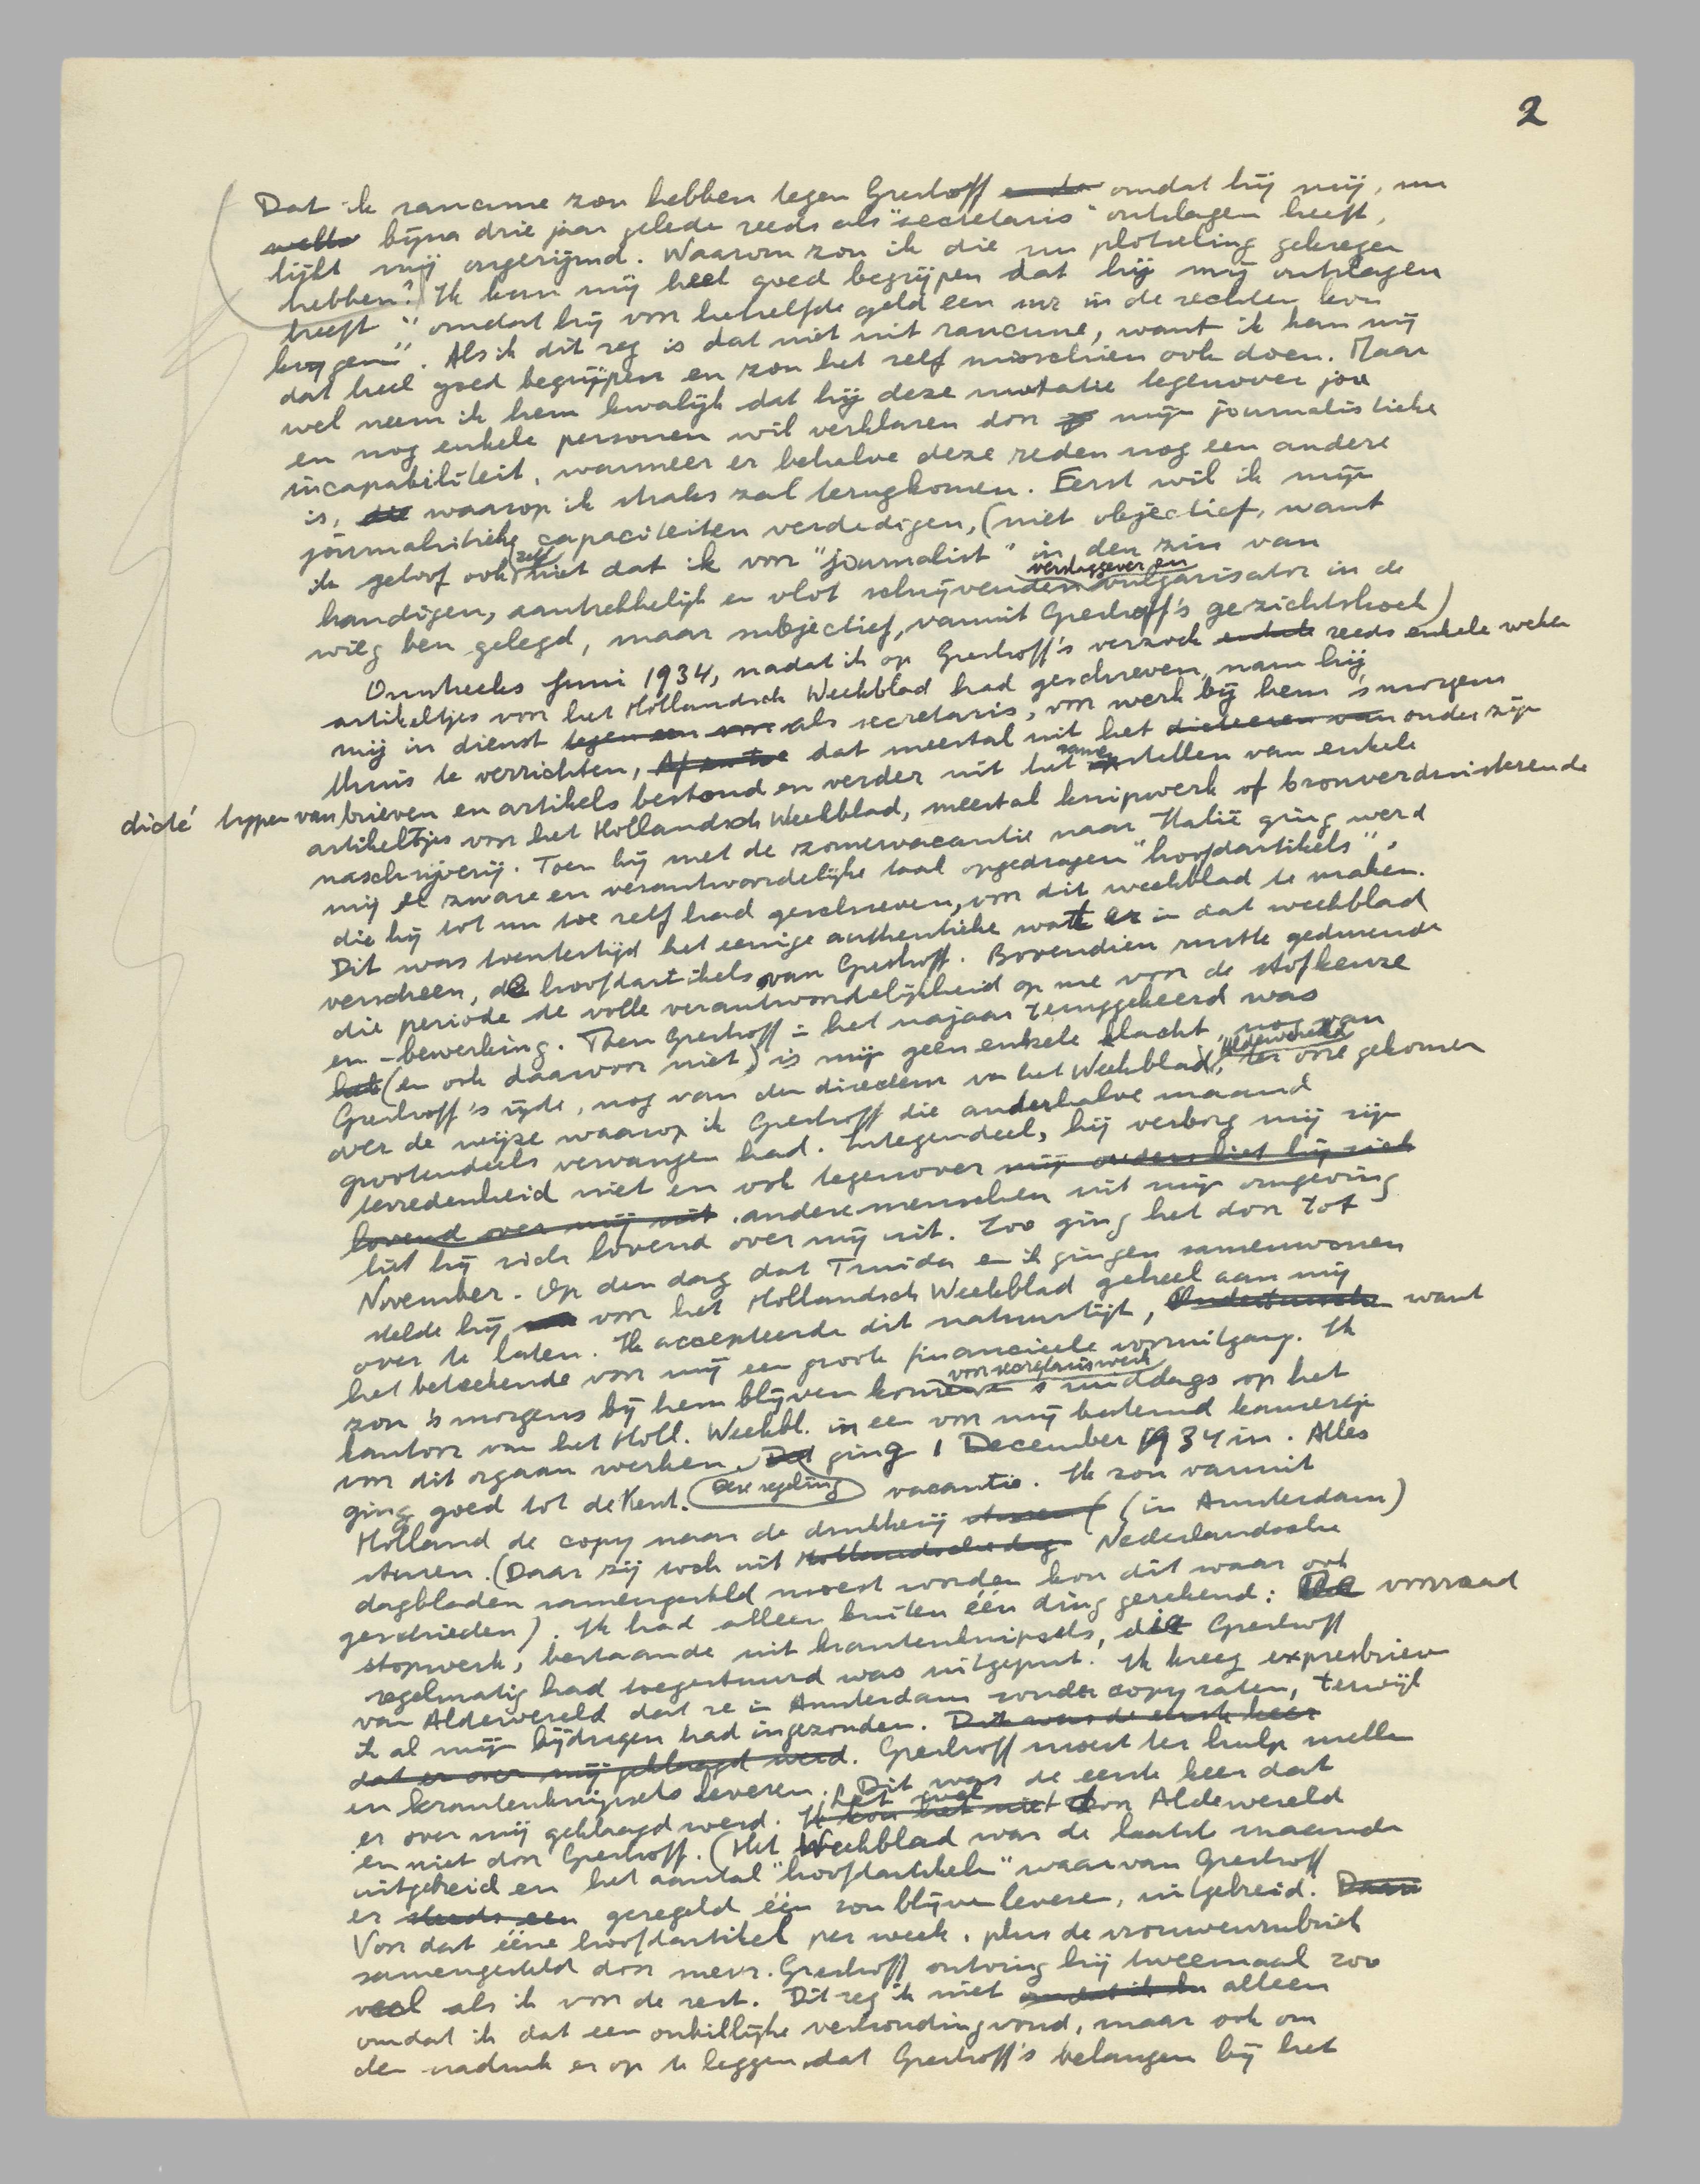 2
Dat ik rancune zou hebben tegen Greshoff omdat hij mij, nu
bijna drie jaar gelede reeds als "secretaris" ontslagen heeft,
lijkt mij ongerijmd. Waarom zou ik die nu plotseling gekregen
hebben? Ik kan mij heel goed begrijpen dat hij mij ontslagen
heeft "omdat hij voor hetzelfde geld een in de rechten kon
krijgen". Als ik dit zeg is dat niet uit rancune, want ik kan mij
dat heel goed begrijpen en zou het zelf misschien ook doen. Maar
wel neem ik hem kwalijk dat hij deze mutatie tegenover jou
en nog enkele personen wil verklaren door mijn journalistieke
incapabiliteit, wanneer er behalve deze reden nog een andere
is, waarop ik straks zal terugkomen. Eerst wil ik mijn
journalistieke capaciteiten verdedigen, (niet objectief, want
ik geloof ook zelf niet dat ik voor "journalist" in den zin van
handigen, aantrekkelijk en vlot schrijvenden verslaggever en vulgarisator in de
wieg ben gelegd, maar subjectief, vanuit Greshoff's gezichtshoek)
Omstreeks Juni 1934, nadat ik op Greshoff's verzoek enkele reeds enkele weken
artikeltjes voor het Hollandsch Weekblad had geschreven, nam hij
mij in dienst tegen een voor als secretaris, om werk bij hem 's morgens
thuis te verrichten, dat meestal uit het dicteeren van onder zijn
dicté typen van brieven en artikels bestond en verder uit het samenstellen van enkele
artikeltjes voor het Hollandsch Weekblad, meestal knipwerk of bronverduisterende
naschrijverij. Toen hij met de zomervacantie naar Italië ging werd
mij de zware en verantwoordelijke taak opgedragen "hoofdartikels",
die hij tot nu toe zelf had geschreven, voor dit weekblad te maken.
Dit was toentertijd het eenige authentieke wat er in dat weekblad
verscheen, de hoofdartikels van Greshoff. Bovendien rustte gedurende
die periode de volle verantwoordelijkheid op me voor de stofkeuze
en -bewerking. Toen Greshoff in het najaar teruggekeerd was
(en ook daarvoor niet) is mij geen enkele klacht, nog van
Greshoff's zijde, nog van den directeur van het Weekblad, Aldewereld, ter oore gekomen
over de wijze waarop ik Greshoff die anderhalve maand
grootendeels vervangen had. Integendeel, hij verborg mij zijn
tevredenheid niet en ook tegenover mij ouders liet hij zich
lovend over mij uit. andere menschen uit mijn omgeving
liet hij zich lovend over mij uit. Zoo ging het door tot
November. Op den dag dat Truida en ik gingen samenwonen
stelde hij voor het Hollandsch Weekblad geheel aan mij
over te laten. Ik accepteerde dit natuurlijk, want
het beteekende voor mij een groote financieele vooruitgang. Ik
zou 's morgens bij hem blijven komen voor secretariswerk 's middags op het
kantoor van het Holl. Weekbl. in een voor mij bestemd kamertje
voor dit orgaan werken. Deze regeling ging 1 December 1934 in. Alles
ging goed tot de Kerst. vacantie. Ik zou vanuit
Holland de copy naar de drukkerij (in Amsterdam)
sturen. (Daar zij toch uit Hollandsche dag Nederlandsche
dagbladen samengesteld moest worden kon dit waar ook
geschieden). Ik had alleen buiten één ding gerekend: voorraad
stopwerk, bestaande uit krantenknipsels, die Greshoff
regelmatig had toegestuurd was uitgeput. Ik kreeg expresbrieven
van Aldewereld dat ze in Amsterdam zonder copy zaten, terwijl
ik al mijn bijdragen had ingezonden. Dit was de eerste keer
dat er over mij geklaagd werd. Greshoff moest ter hulp snellen
en krantenknipsels leveren. Dit was de eerste keer dat
er over mij geklaagd werd. Ik kon het niet het zuel door Aldewereld
en niet door Greshoff. (Het Weekblad was de laatste maanden
uitgebreid en het aantal "hoofdartikelen" waarvan Greshoff
er steeds een geregeld één zou blijven leveren, uitgebreid. Daar
Voor dat ééne hoofdartikel per week, plus de vrouwenrubriek
samengesteld door mevr. Greshoff, ontving hij tweemaal zoo
veel als ik voor de rest. Dit zeg ik niet omdat ik alleen
omdat ik dat een onbillijke verhouding vond, maar ook om
den nadruk er op te leggen dat Greshoff's belangen bij het